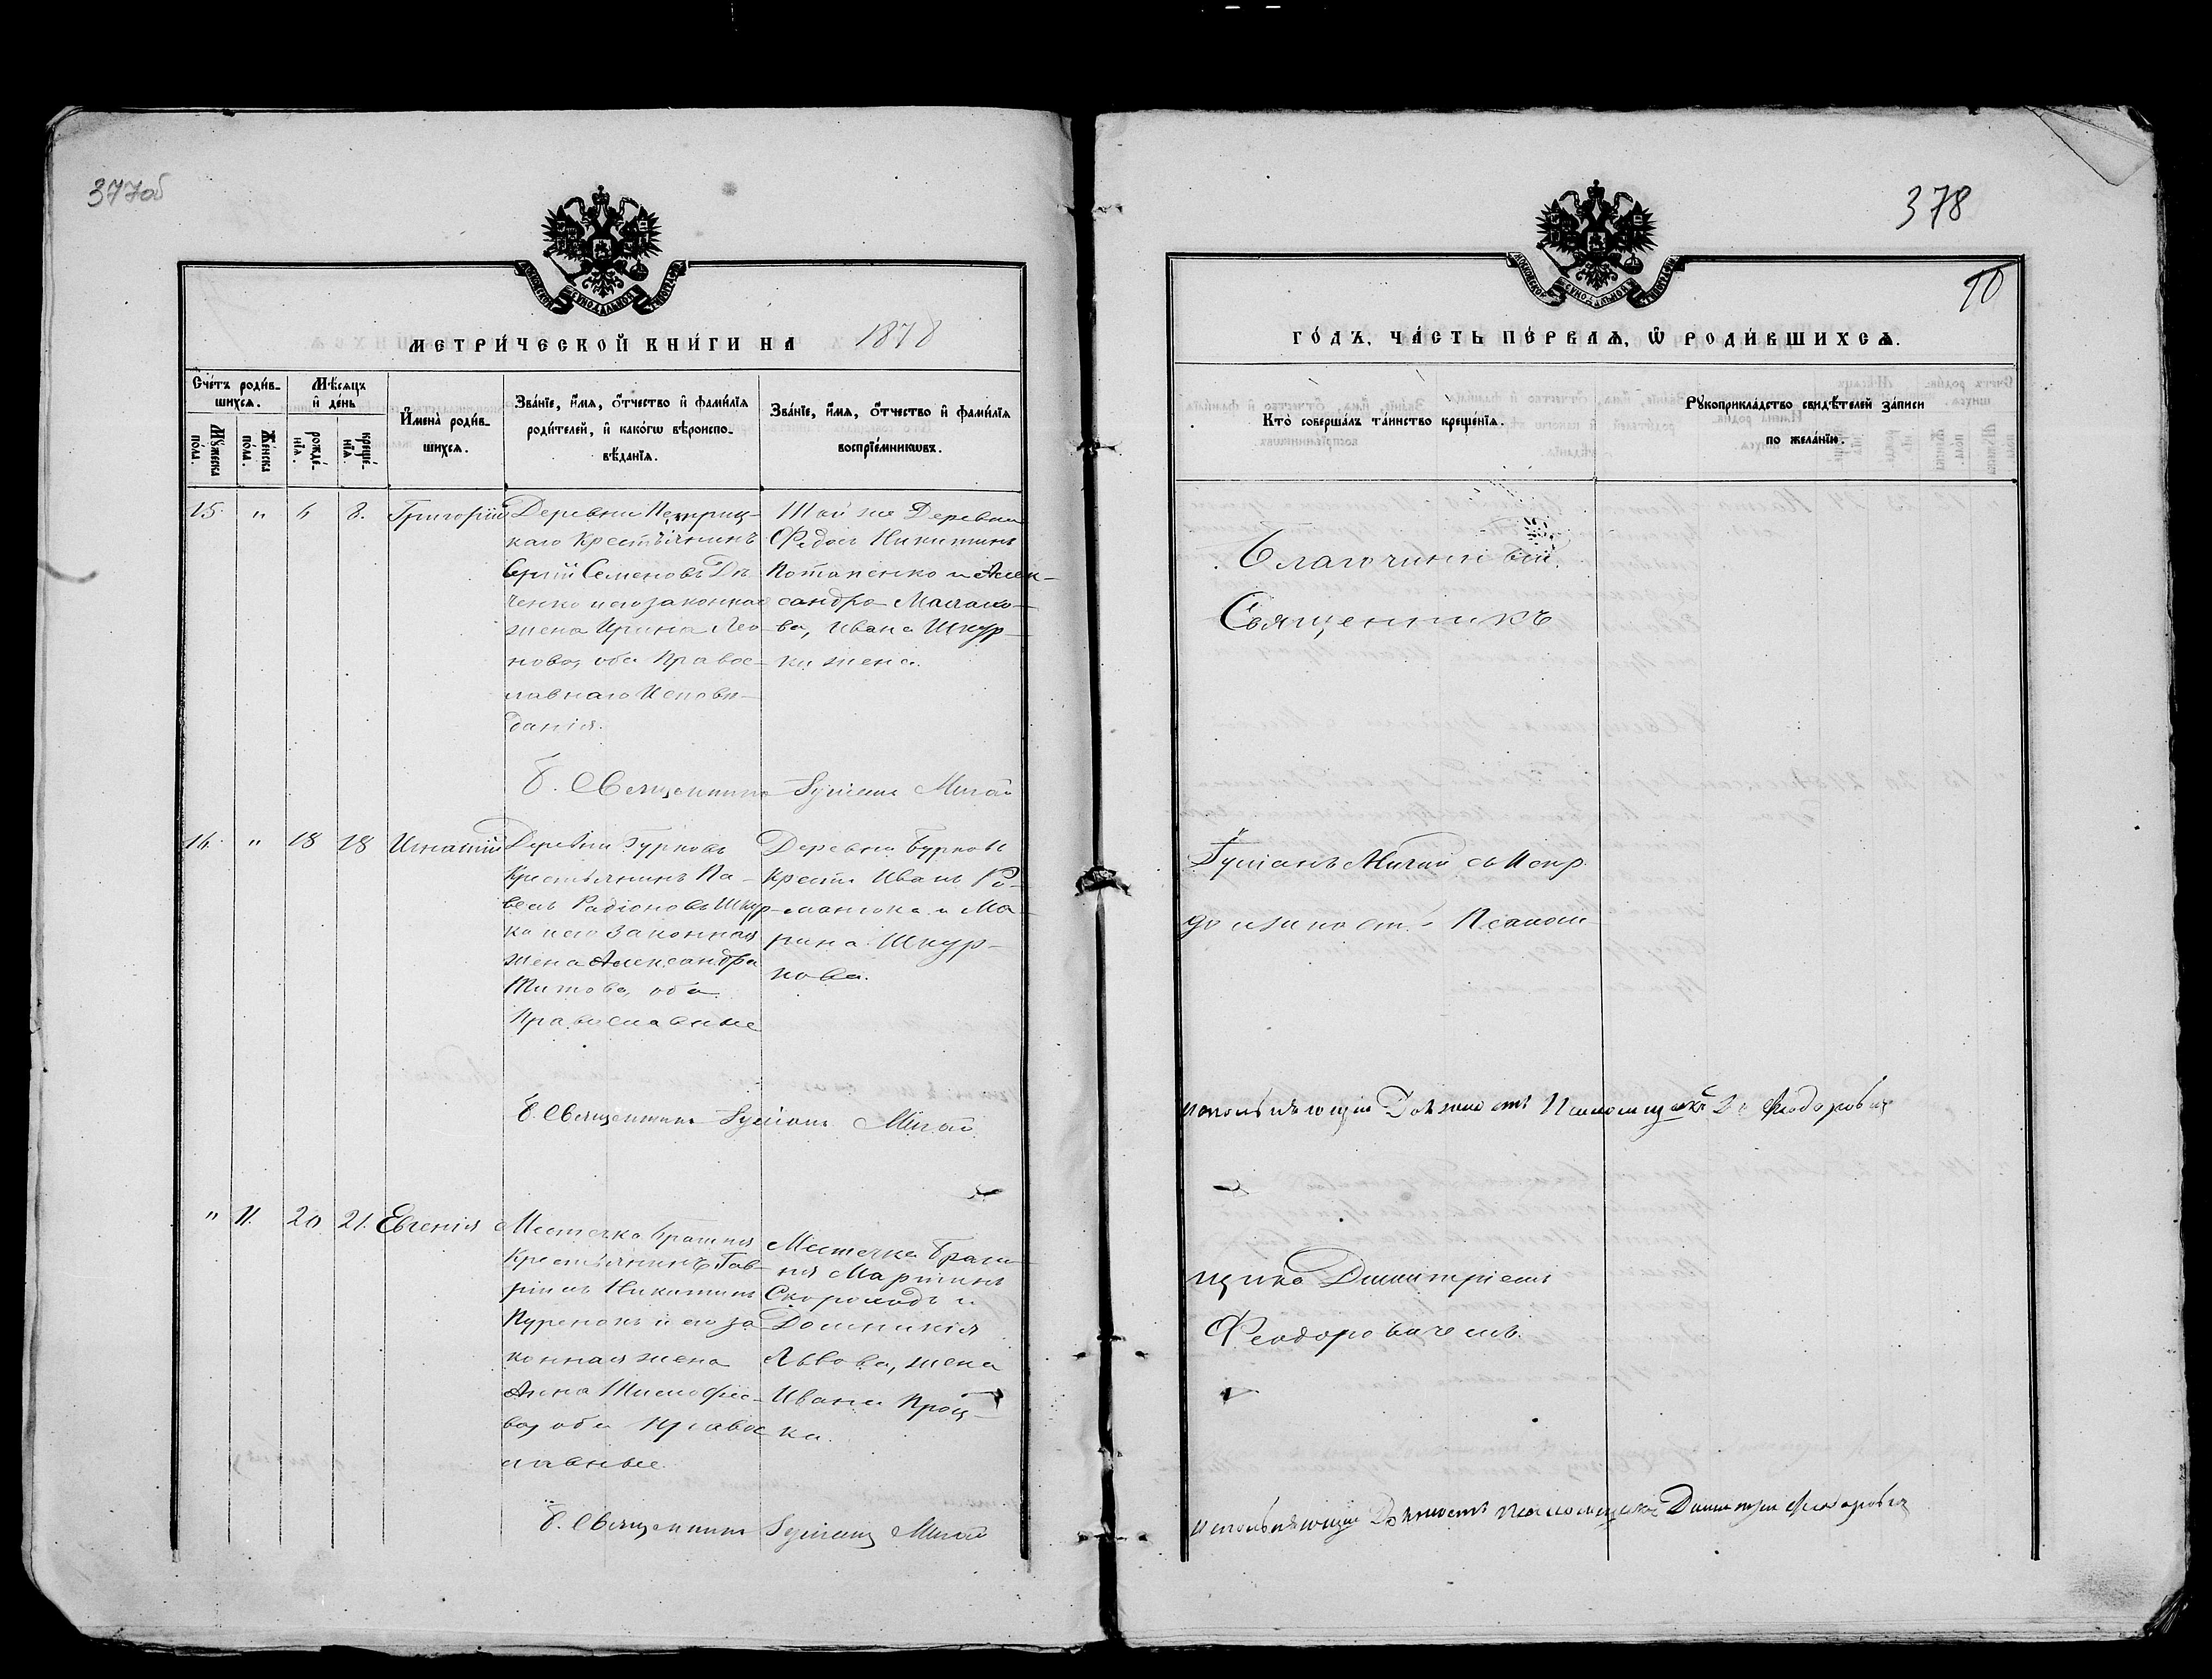 377об
МЕТРИ́ЧЕСКОЙ КНИ́ГИ НА 1878
Сче́тъ роди́в-
шихсѧ.
Мѣ́сѧцъ
и҆ де́нь
Мꙋ́жеска по́ла.
Же́нска по́ла.
рожде́нїѧ.
креще́нїѧ.
И҆мена̀ роди́в-
шихсѧ.
Зва́нїе, и҆́мѧ, ѻ҆́тчество и҆ фами́лїѧ
роди́телей, и҆ како́гѡ вѣроиспо-
вѣ́данїѧ.
Зва́нїе, и҆́мѧ, ѻ҆́тчество и҆ фами́лїѧ
воспрїе́мникѡвъ.
15. " 6 8. Григорій
Деревни
каго Крестьянинъ
Сергій Семеновъ
ченко и его законная
жена Ирина Лео-
нова, оба Правос-
лавнаго Исповѣ-
данія.
Той же Деревни
Федоръ Никитинъ
Потапенко и Алек-
сандра Малахо-
ва, Ивана Шкур-
ки жена.
Б. Священникъ Гуліанъ Мигай
16. " 18 18 Игнатій
Деревни Буркова
Крестьянинъ Па-
велъ Радіоновъ Шкур-
ка и его Законная
жена Александра
Титова, оба
Православные
Деревни Буркова
Крест. Иванъ Ро-
манюка и Ма-
рина Шкур-
кова.
Б. Священникъ Гуліанъ Мигай
" 11. 20 21. Евгенія
Местечка Брагиня
Крестьянинъ Гав-
ріилъ Никитинъ
Куренокъ и его за
конная жена
Анна Тимофее-
ва, оба Правос
лавные
Местечка Браги-
ня Мартинъ
Скороходъ и
Домникія
Львова, жена
Ивана Проц-
ка.
Б. Священникъ Гуліанъ Мигай
378
10
ГО́ДЪ, ЧА́СТЬ ПЕ́РВАѦ, Ѡ҆ РОДИ́ВШИХСѦ.
Кто̀ соверша́лъ та́инство креще́нїѧ.
Рꙋкоприкла́дство свидѣ́телей за́писи
по жела́нїю.
Благочинный
Священникъ
Гуліанъ Мигай съ Испр.
должность Псалом
исполняющій Должность Псаломщика Д. Феодоровичъ
щика Димитріемъ
Феодоровичемъ.
исполняющій Должность Псаломщика Димитрій Феодоровичъ